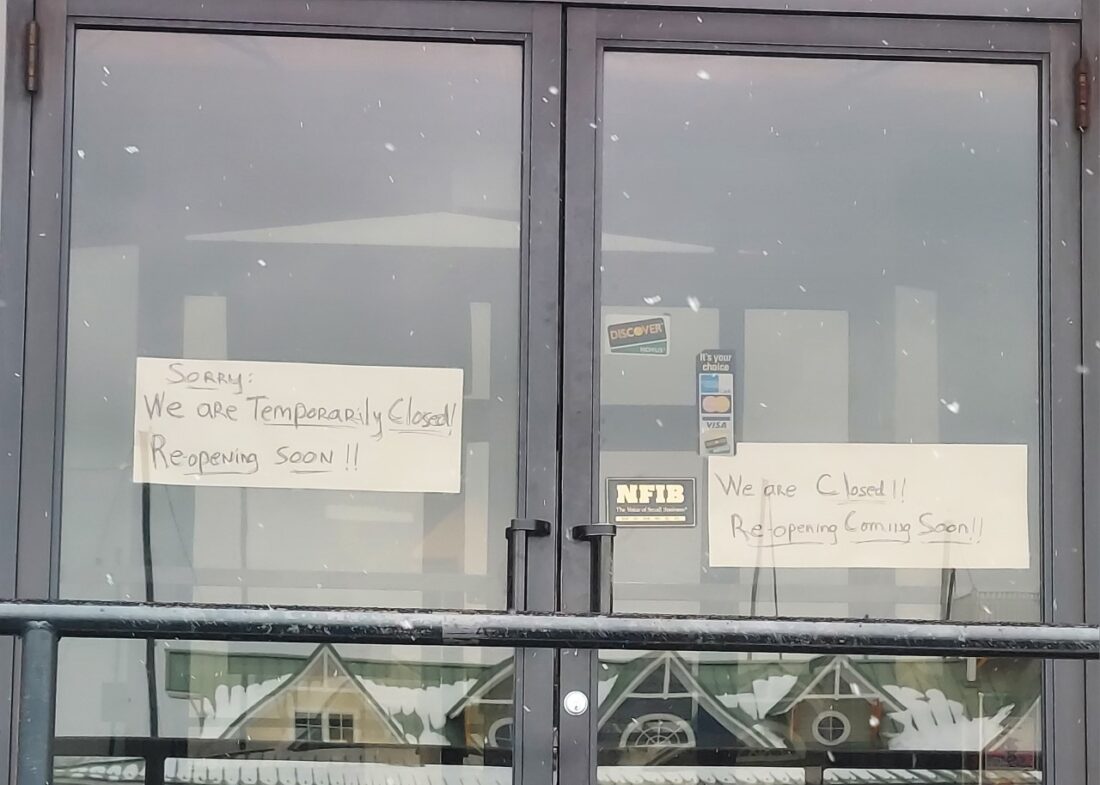 Sorry:
We are Temporarily Closed!
Re-opening soon!!
DISCOVER
It's your
choice
VISA
NFIB
The Voice of Small Business
MEMBER
We are Closed!!
Re-opening Coming Soon!!